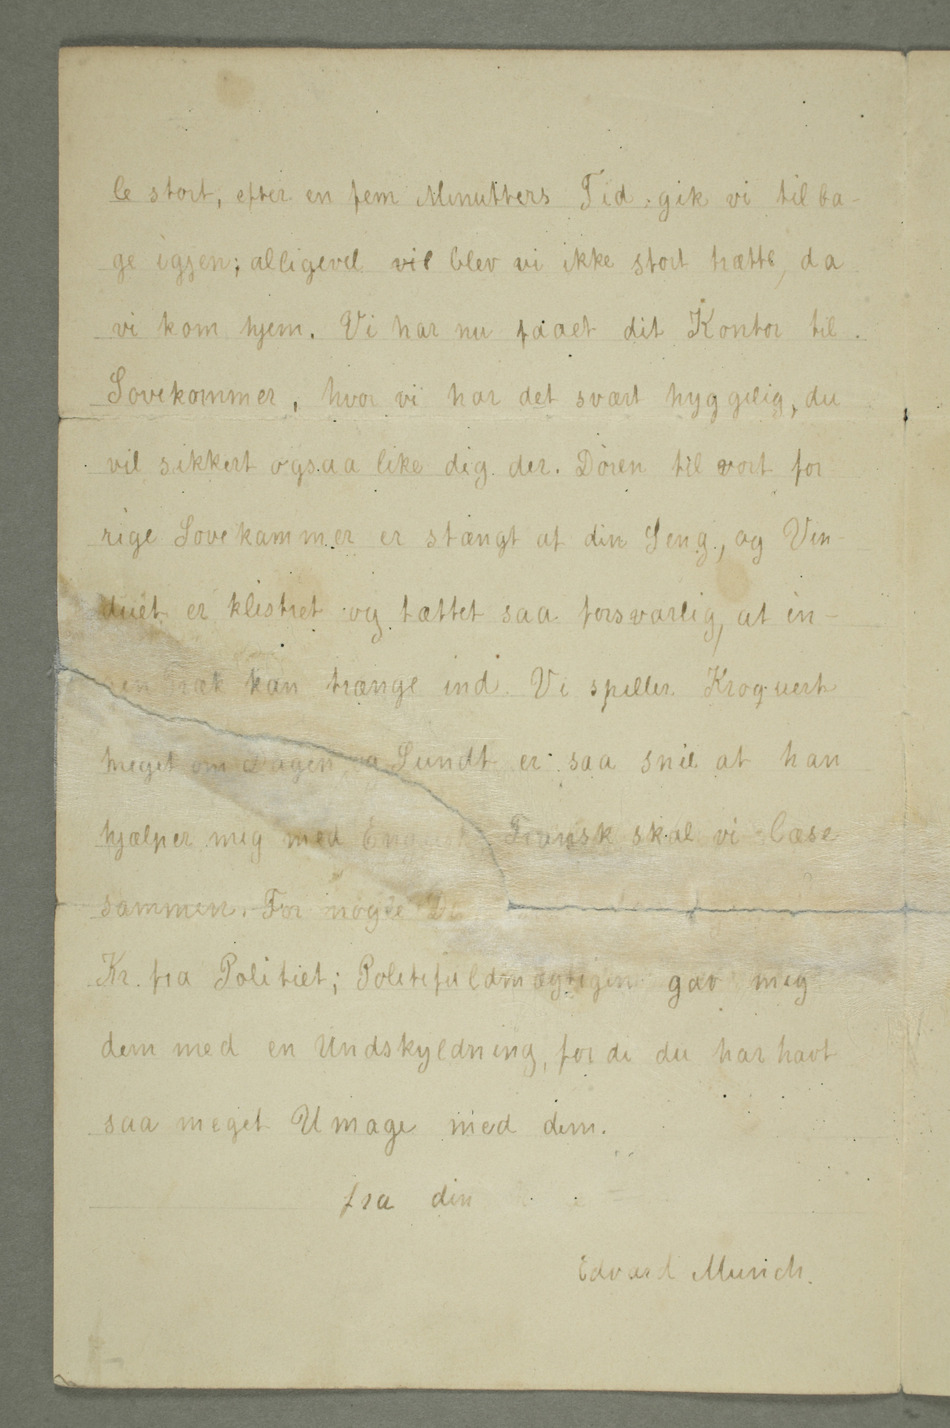 le stort, efter en fem Minutters Tid gik vi tilba-
ge igjen; alligevel vil blev vi ikke stort trætte, da
vi kom hjem. Vi har nu faaet dit Kontor til
Sovekammer, hvor vi har det svært hyggelig, du
vil sikkert ogsaa like dig der. Døren til vort for
rige Sovekammer er stængt af din Seng, og Vin-
duet er klistret og tættet saa forsvarlig, at in-
gen Træk kan trænge ind. Vi spiller Kroquert
meget om Dagen og Lundt er saa snil at han
hjælper mig med Engelsk Fransk skal vi læse
sammen. For nogle
Kr. fra Politiet; Politifuldmægtigen gav mig
dem med en Undskyldning, for di du har havt
saa meget Umage med dem.
fra din
Edvard Munch.